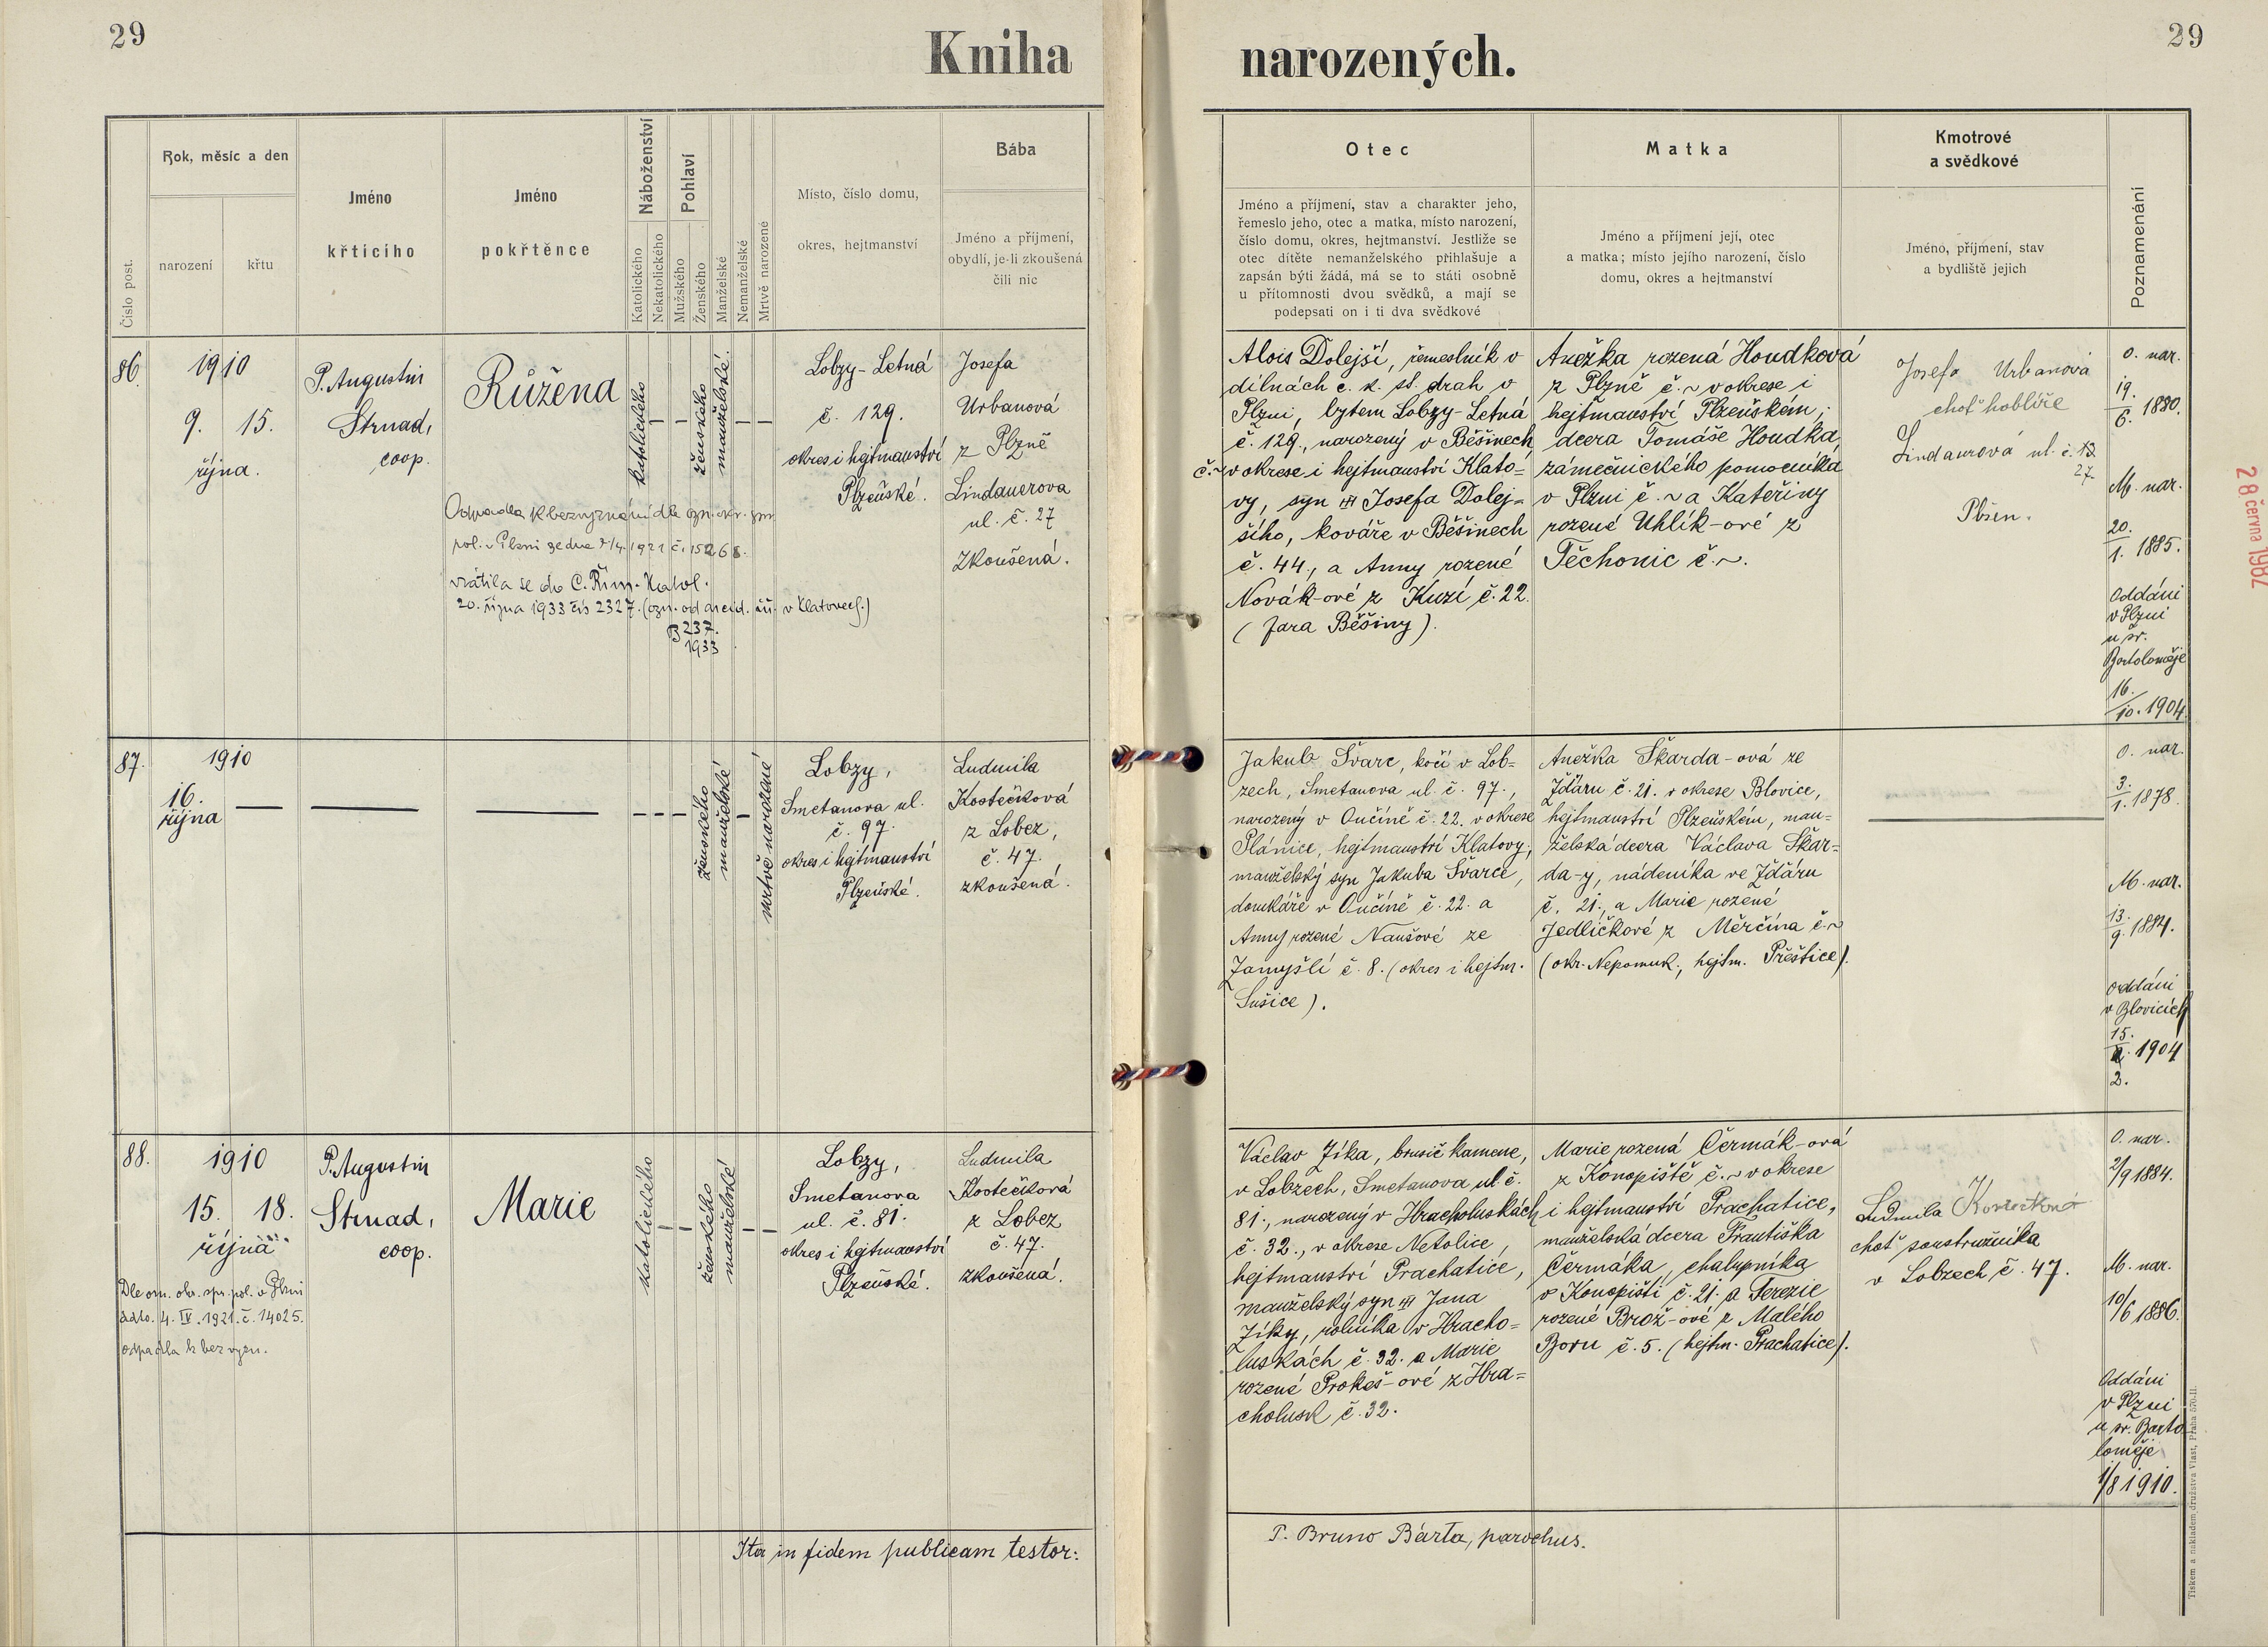 29
Kniha
narozených.
29
Číslo post.
Rok, měsíc a den
narození
křtu
Jméno
křtícího
Jméno
pokřtěnce
Náboženství
Katolického
Nekatolického
Pohlaví
Mužského
Ženského
Manželské
Nemanželské
Mrtvě narozené
Místo, číslo domu,
okres, hejtmanství
Bába
Jméno a příjmení,
obydlí, je-li zkoušená
čili nic
Otec
Jméno a příjmení, stav a charakter jeho,
řemeslo jeho, otec a matka, místo narození,
číslo domu, okres, hejtmanství. Jestliže se
otec dítěte nemanželského přihlašuje a
zapsán býti žádá, má se to státi osobně
u přítomnosti dvou svědků, a mají se
podepsati on i ti dva svědkové
Matka
Jméno a příjmení její, otec
a matka; místo jejího narození, číslo
domu, okres a hejtmanství
Kmotrové
a svědkové
Jméno, příjmení, stav
a bydliště jejich
Poznamenání
86.
1910
9. 15.
října.
P. Augustin
Strnad,
coop.
Růžena
katolického
ženského
manželské.
Lobzy-Letná
č. 129.
okres i hejtmanství
Plzeňské.
Josefa
Urbanová
z Plzně
Lindauerova
ul. č. 27
zkoušená.
Odpadla k bezvyznání dle ozn. okr. spr.
pol. v Plzni ze dne 7/4. 1921 č. 15268.
vrátila se do C. Řím. Katol.
20. října 1933 čís 2327. (ozn. od arcid. úř. v Klatovech.)
B 237.
1933
Alois Dolejší, řemeslník v
dílnách c. k. st. drah v
Plzni, bytem Lobzy-Letná
č. 129., narozený v Běšinech
č.~ v okrese i hejtmanství Klato=
vy, syn Josefa Dolej=
šího, kováře v Běšinech
č. 44., a Anny rozené
Novák-ové z Kuzí č. 22.
(fara Běšiny).
Anežka rozená Houdková
z Plzně č.~ v okrese i
hejtmanství Plzeňském;
dcera Tomáše Houdka,
zámečnického pomocníka
v Plzni č.~ a Kateřiny
rozené Uhlík-ové z
Těchonic č.~.
Josefa Urbanová
choť hoblíře
Lindaurová ul. č. 13
27.
Plzen.
O. nar.
19.
6. 1880.
M. nar.
20.
1. 1885.
Oddáni
v Plzni
u sv.
Bartoloměje
16.
10. 1904.
28 června 1982
87.
1910
16.
října
ženského
manželské
mrtvě narozené
Lobzy,
Smetanova ul.
č. 97.
okres i hejtmanství
Plzeňské.
Ludmila
Kostečková
z Lobez,
č. 47.
zkoušená.
Jakub Švarc, kočí v Lob=
zech, Smetanova ul. č. 97.,
narozený v Oučíně č. 22. v okrese
Plánice, hejtmanství Klatovy,
manželský syn Jakuba Švarce,
domkáře v Oučíně č. 22. a
Anny rozené Naušové ze
Zamyšlí č. 8. (okres i hejtm.
Sušice).
Anežka Škarda-ová ze
Žďáru č. 21. v okrese Blovice,
hejtmanství Plzeňském, man=
želská dcera Václava Škar=
da-y, nádeníka ve Ždáru
č. 21., a Marie rozené
Jedličkové z Měrčína č.~
(okr. Nepomuk, hejtm. Přeštice).
O. nar.
3.
1. 1878.
M. nar.
13.
9. 1884.
oddáni
v Blovicích
15.
1904
2.
88.
1910
15. 18.
října
P. Augustin
Strnad,
coop.
Marie
katolického
ženského
manželské
Lobzy,
Smetanova
ul. č. 81.
okres i hejtmanství
Plzeňské.
Ludmila
Kostečková
z Lobez
č. 47.
zkoušená.
Dle om. okr. spr. pol. v Plzni
ddto. 4. IV. 1921. č. 14025.
odpadla k bez vyzn.
Václav Zíka, brusič kamene,
v Lobzech, Smetanova ul. č.
81., narozený v Hracholuskách
č. 32., v okrese Netolice,
hejtmanství Prachatice,
manželský syn Jana
Zíky, rolníka v Hracho=
luskách č. 32. a Marie
rozené Prokeš-ové z Hra=
cholusk č. 32.
Marie rozená Čermák-ová
z Konopiště č.~ v okrese
i hejtmanství Prachatice,
manželská dcera Františka
Čermáka, chalupníka
v Konopišti č. 21. a Terezie
rozené Brož-ové z Malého
Boru č. 5. (hejtm. Prachatice).
Ludmila Kostečková
choť soustružníka
v Lobzech č. 47.
O. nar.
2/9 1884.
M. nar.
10/6 1886.
Oddáni
v Plzni
u sv. Barto
loměje
1/8 1910.
Ita in fidem publicam testor:
P. Bruno Bárta, parochus.
Tiskem a nákladem družstva Vlast, Praha 570-II.